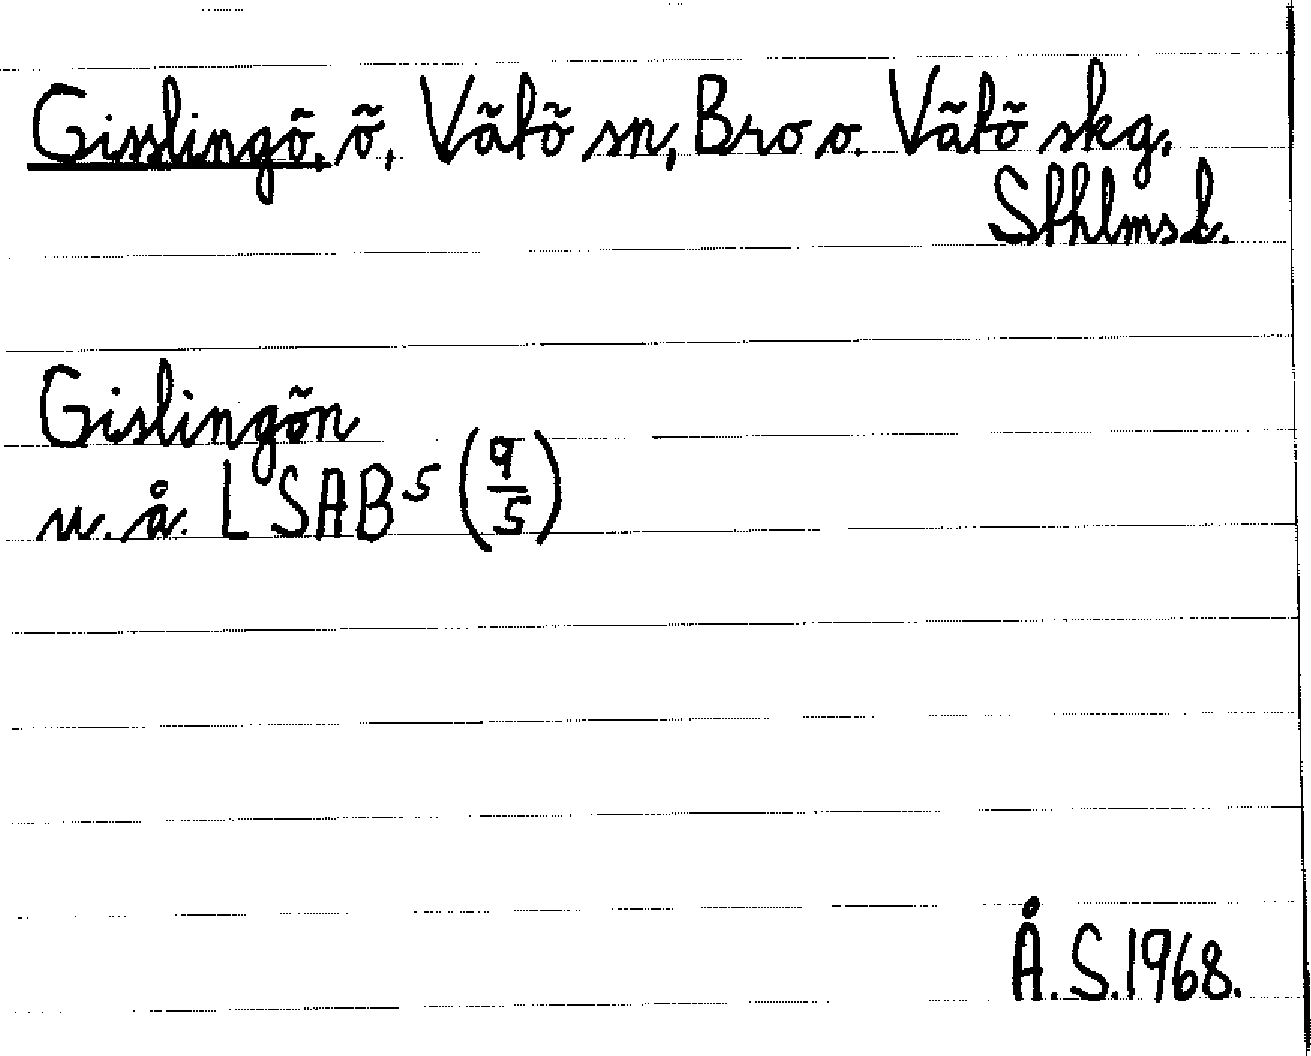 Gisslingö, ö, Vätö sn, Bro o. Vätö skg,
Sthlms l.
Gislingön
u. å. LSAB 5 (9/5)
Å.S. 1968.